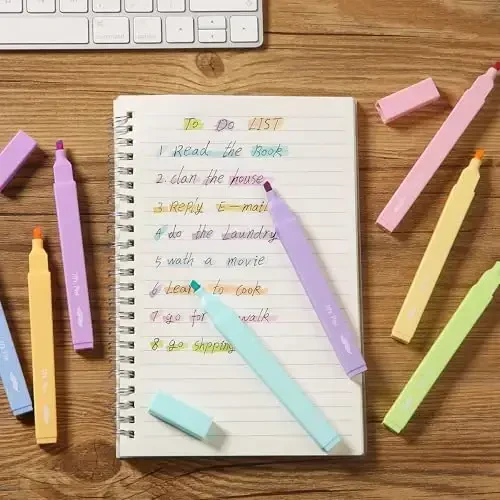 To Do LIST
1 Read the Book
2. clan the house
3. Reply E-mail
4 do the Laundry
5 wath a movie
6 Learn to cook
7 go for walk
8 go shpping